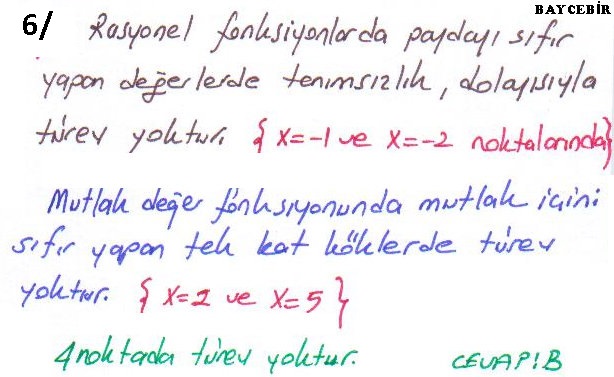 BAYCEBİR
6/ Rasyonel fonksiyonlarda paydayı sıfır
yapan değerlerde tanımsızlık, dolayısıyla
türev yoktur. { x=-1 ve x=-2 noktalarında}
Mutlak değer fonksiyonunda mutlak içini
sıfır yapan tek kat köklerde türev
yoktur. { x=2 ve x=5 }
4 noktada türev yoktur. CEVAP:B